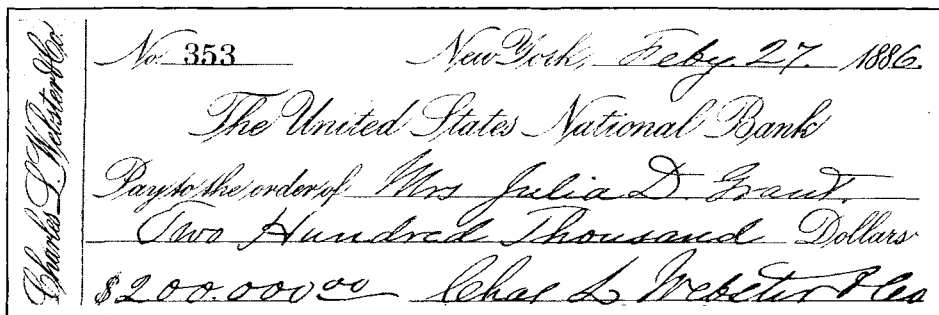 Charles L. Webster & Co.
No. 353 New York, Feby. 27. 1886.
The United States National Bank
Pay to the order of Mrs Julia D. Grant.
Two Hundred Thousand Dollars
$200.000 00 Chas L Webster & Co